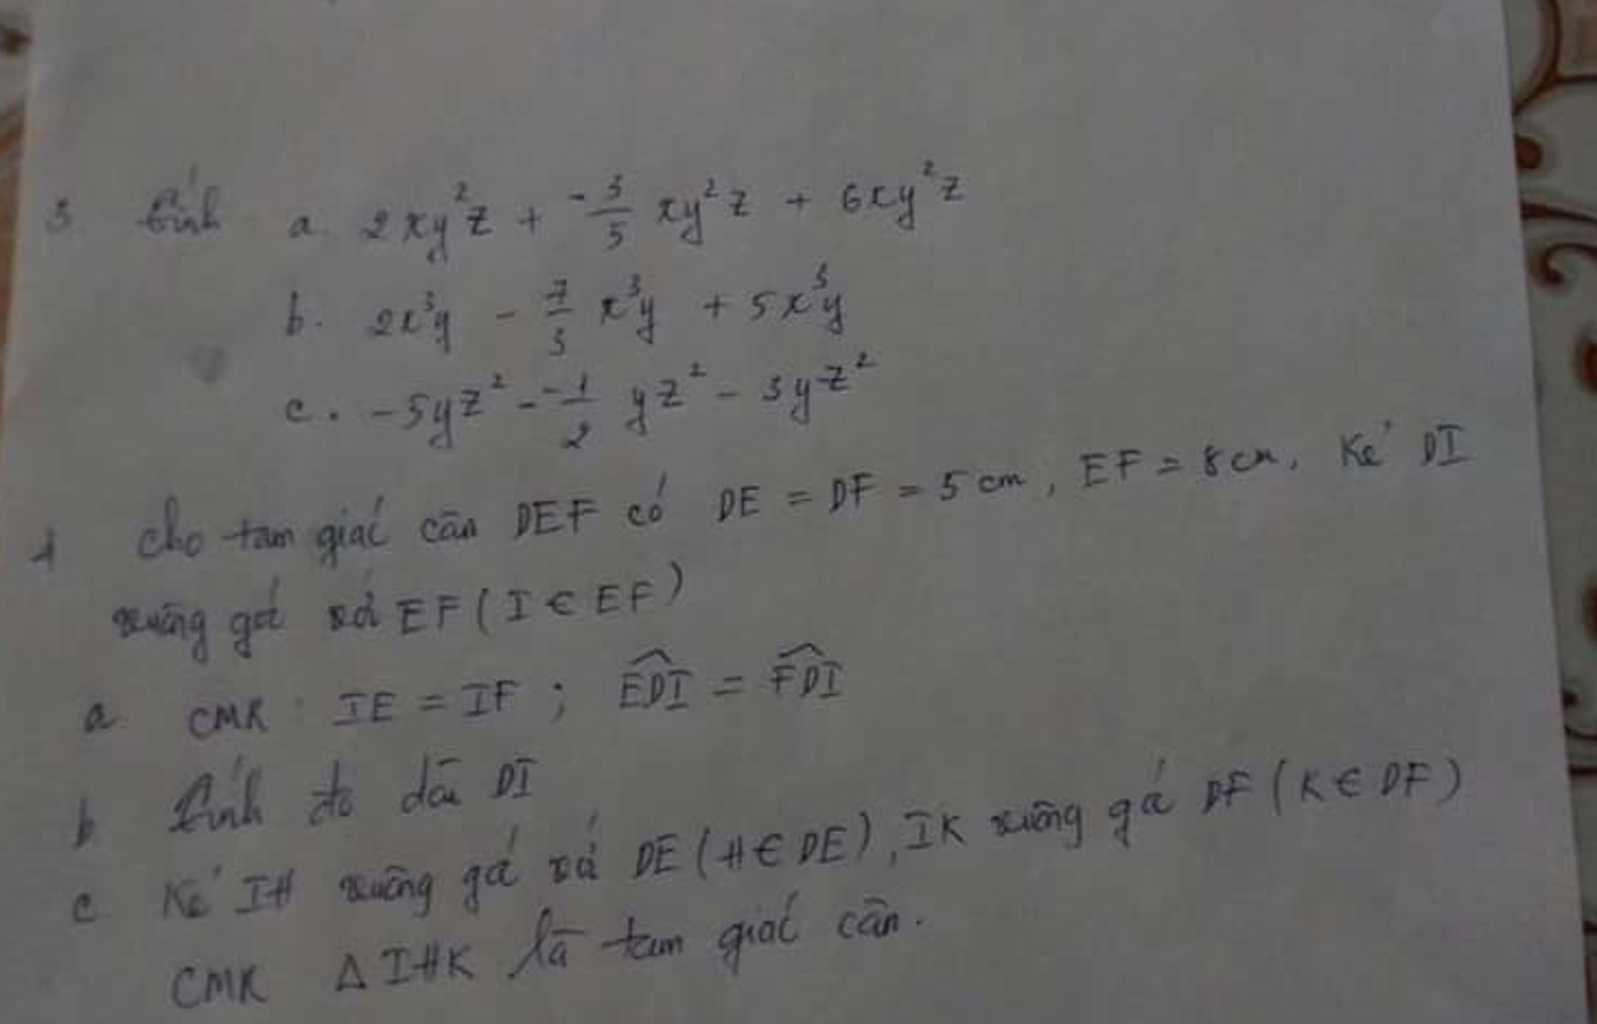 3. tính a. 2xy²z + -3/5 xy²z + 6xy²z
b. 2x³y - 7/3 x³y + 5x³y
c. -5yz² - -1/2 yz² - 3yz²
4 cho tam giác cân DEF có DE = DF = 5cm, EF = 8cm. Kẻ DI
vuông góc với EF (I ∈ EF)
a CMR IE = IF ; \widehat{EDI} = \widehat{FDI}
b tính độ dài DI
c Kẻ IH vuông góc với DE (H ∈ DE), IK vuông góc DF (K ∈ DF)
CMR Δ IHK là tam giác cân.